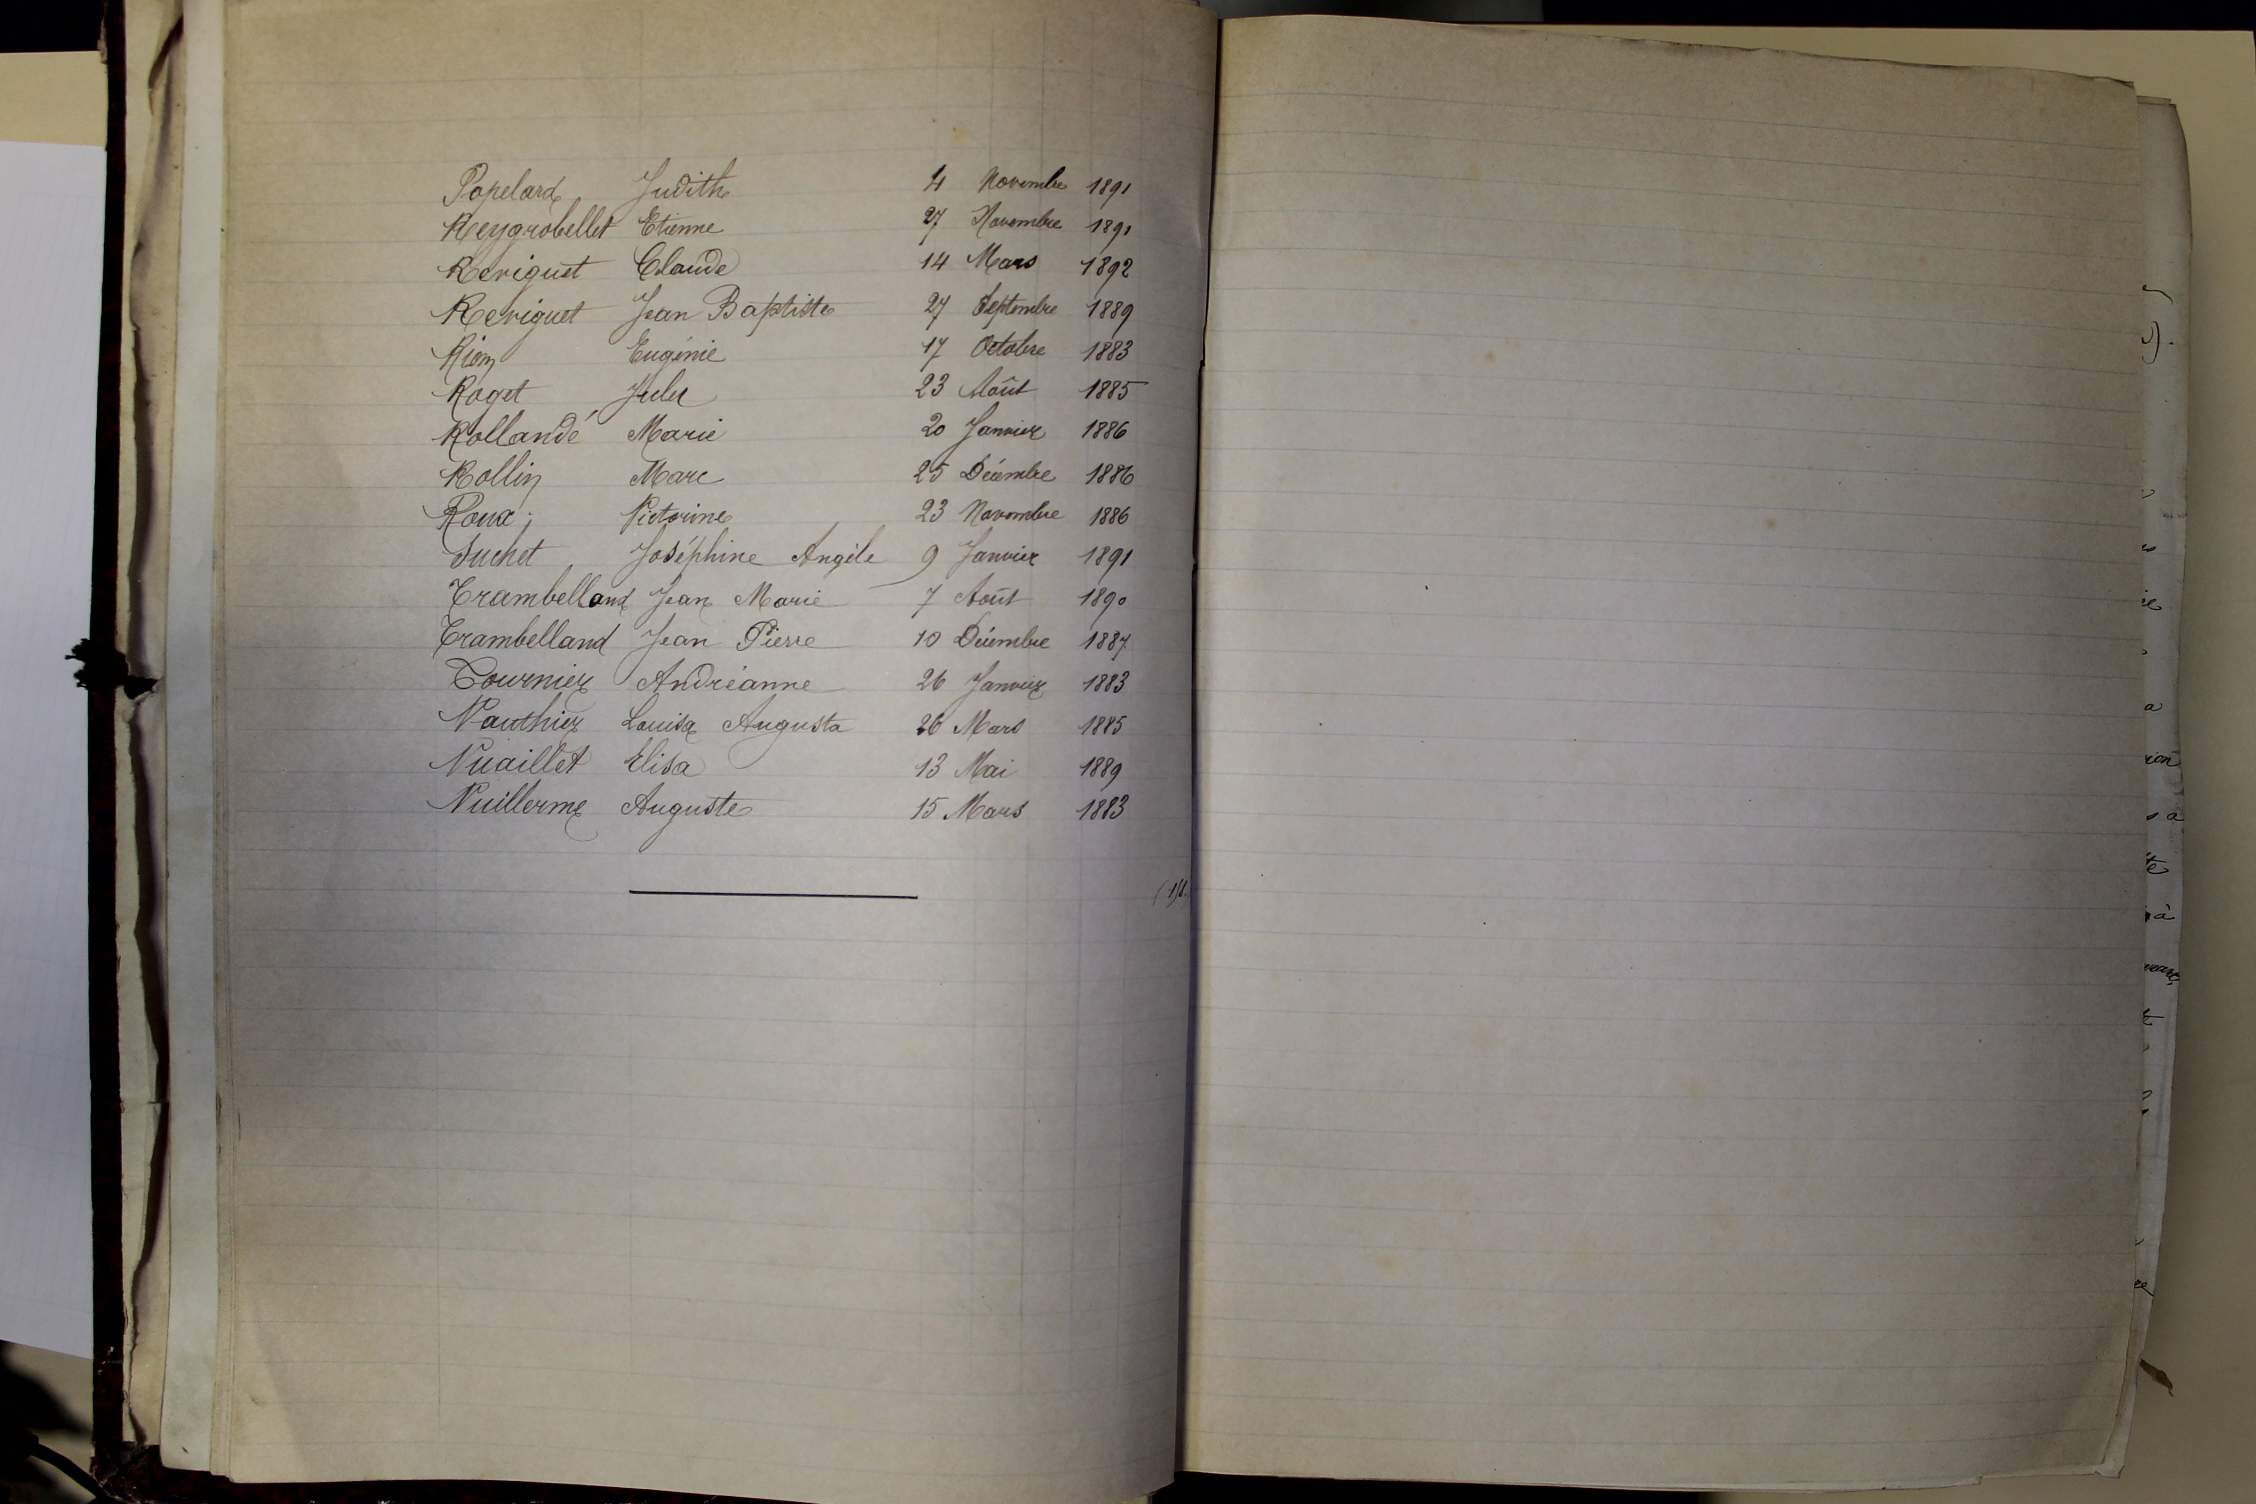 Popelard Judith 4 Novembre 1891
Reygrobellet Etienne 27 Novembre 1891
Reviguet Claude 14 Mars 1892
Reviguet Jean Baptiste 27 Septembre 1889
Rion Eugénie 17 Octobre 1883
Roget Jules 23 Août 1885
Rollandé Marie 20 Janvier 1886
Rollin Marc 25 Décembre 1886
Roux Victorine 23 Novembre 1886
Suchet Joséphine Angèle 9 Janvier 1891
Trambelland Jean Marie 7 Août 1890
Trambelland Jean Pierre 10 Décembre 1887
Tournier Andréanne 26 Janvier 1883
Vauthier Louisa Augusta 26 Mars 1885
Vuaillet Elisa 13 Mai 1889
Vuillerme Auguste 15 Mars 1883